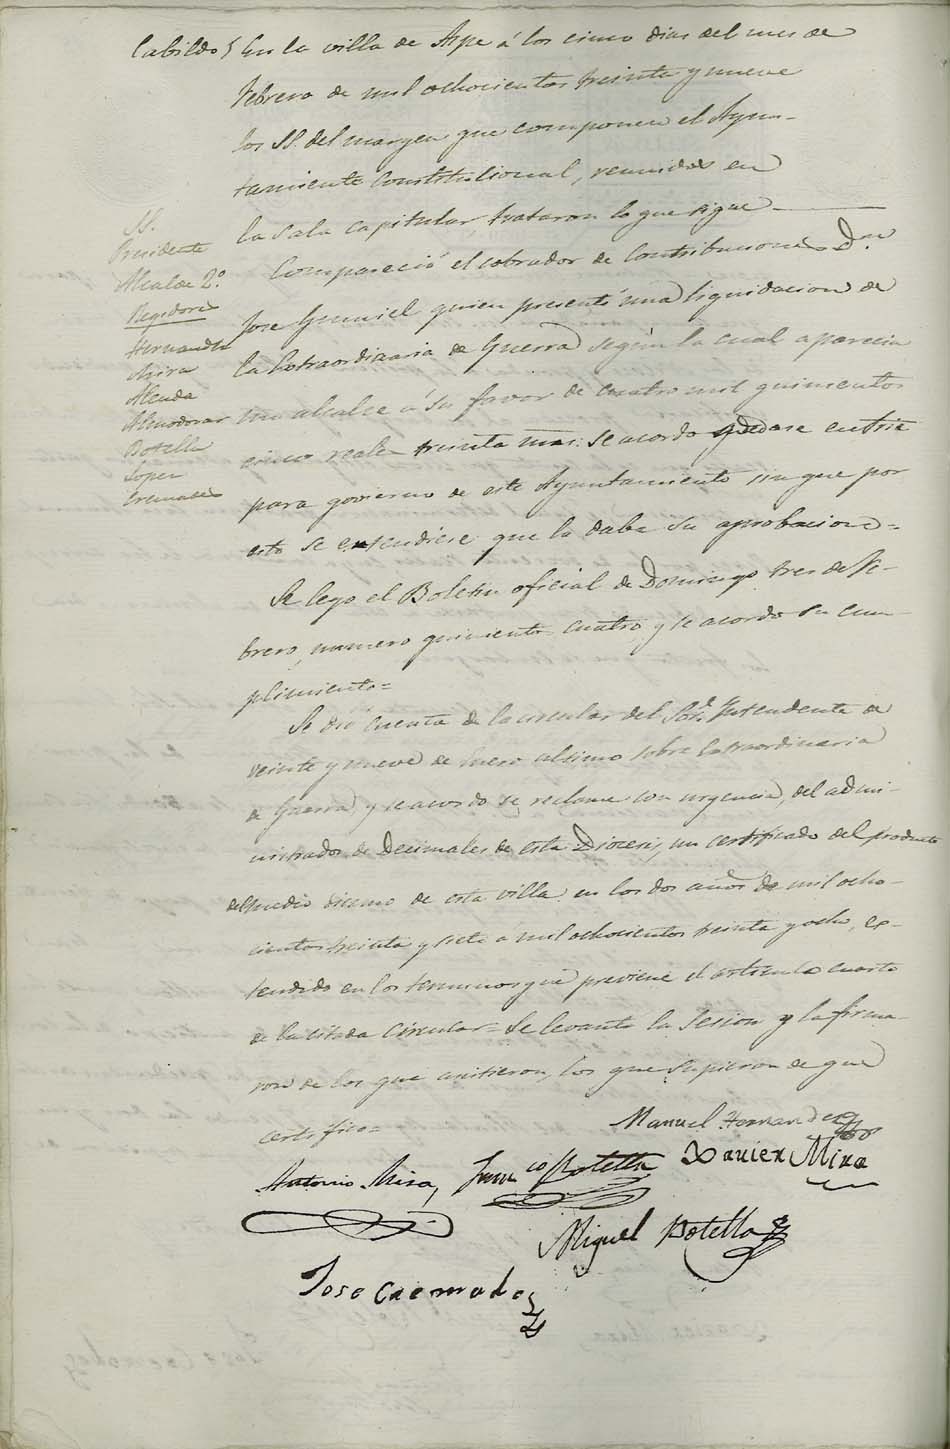 Cabildo} En la villa de Aspe á los cinco dias del mes de
febrero de mil ochocientos treinta y nueve
los SS. del margen que componen el Ayun-
tamiento Constitucional, reunidos en
la sala capitular trataron lo que sigue
SS.
Presidente
Alcalde 2.º
Regidores
Hernandez
Mira
Alenda
Almodovar
Botella
Lopez
Cremades
Compareció el cobrador de Contribuciones D.n
Jose quien presentó una liquidacion de
la Extraordinaria de Guerra según la cual aparecia
un alcalze á su favor de cuatro mil quinientos
cinco reales treinta mrs: se acordo quedase
para govierno de este Ayuntamiento sin que por
esto se entendiese que la daba su aprobacion=
Se leyo el Boletin oficial de Domingo tres de Fe-
brero, numero quinientos cuatro, y se acordo su cum-
plimiento=
Se dió cuenta de la circular del Sor. Intendente de
veinte y nueve de Enero ultimo sobre Extraordinaria
de Guerra, y se acordo se reclame con urgencia, del admi-
nistrador de Decimales de esta Diocesis, un certificado del producto
del medio diezmo de esta villa en los dos años de mil ocho-
cientos treinta y siete a mil ochocientos treinta y ocho, ex-
tendido en los terminos que previene el articulo cuarto
de la citada circular= Se levanto la Sesion y la firma-
ron de los que asistieron, los que supieron de que
certifico=
Manuel Hernandez
Antonio Mira, Fran.co Botella Xavier Mira
Miguel Botella
Jose Cremades